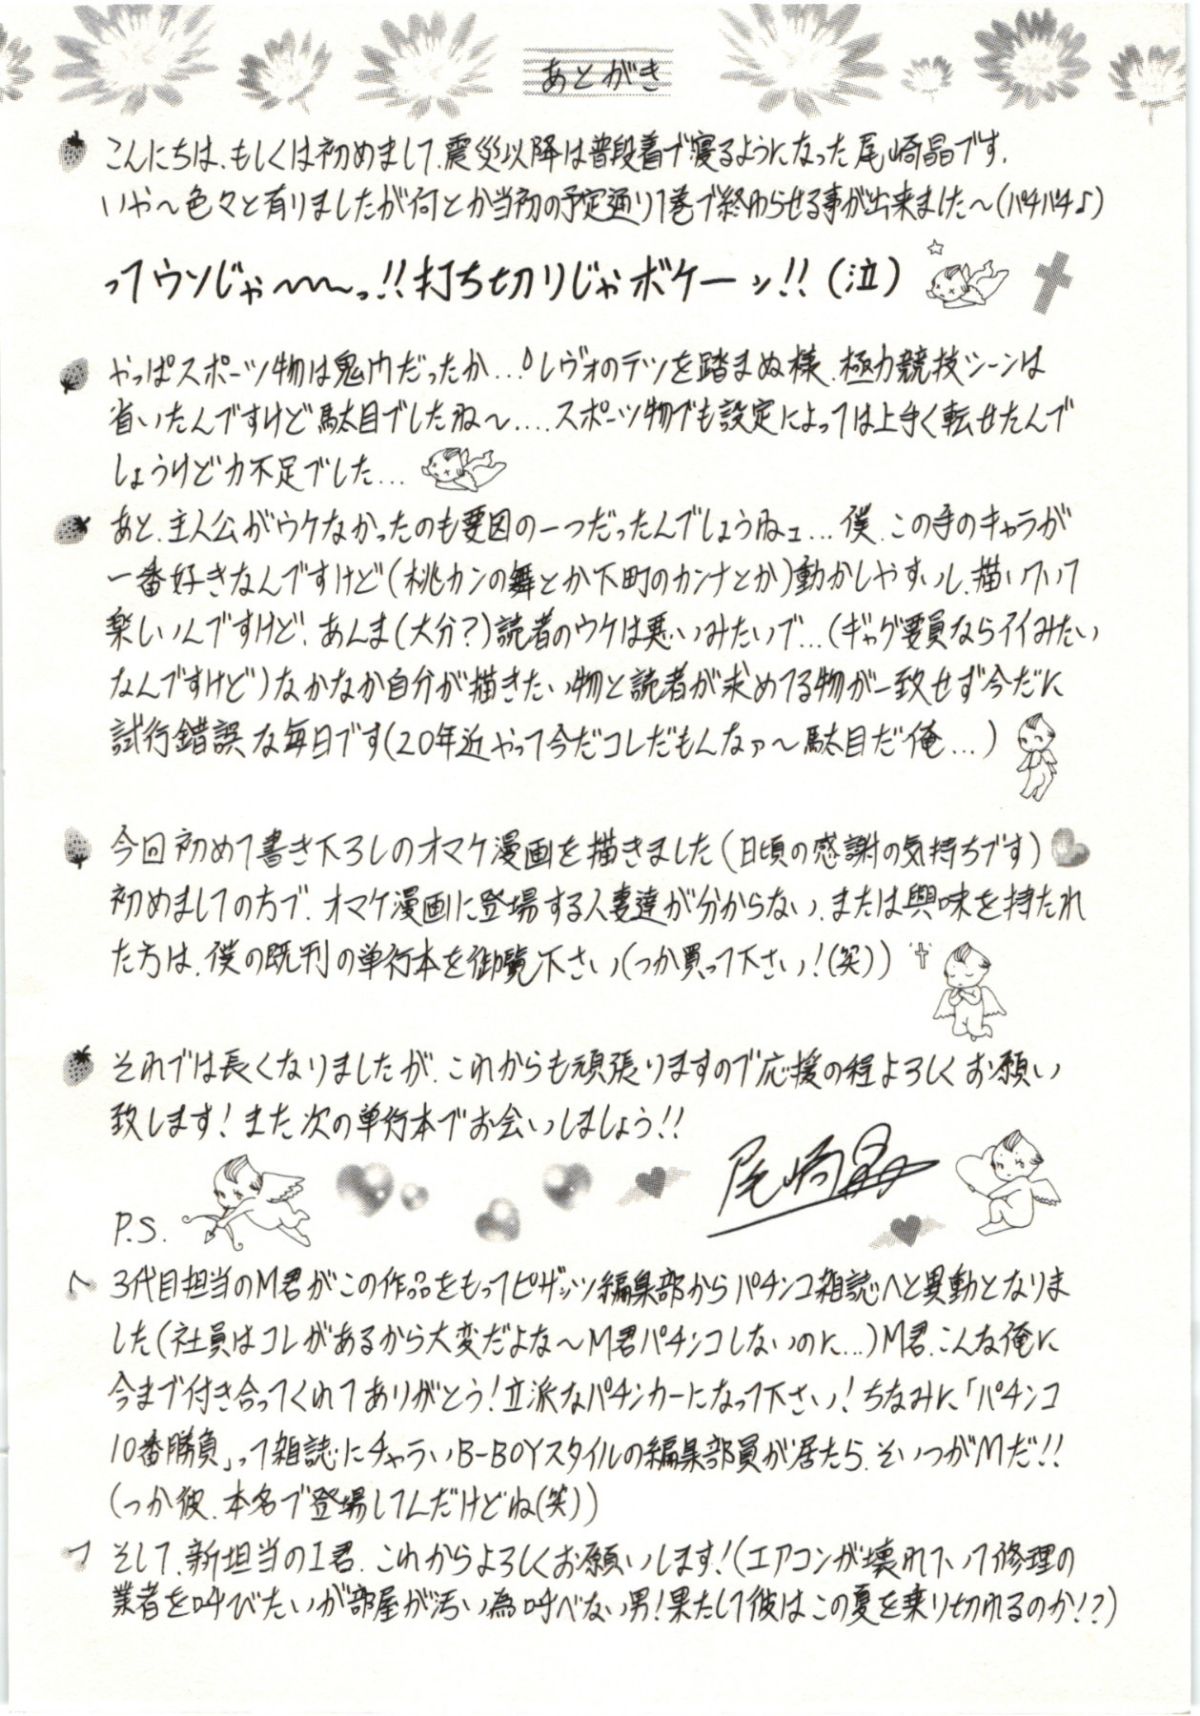 あとがき
こんにちは、もしくは初めまして、震災以降は普段着で寝るようになった尾崎晶です。
いや〜色々と有りましたが何とか当初の予定通り1巻で終わらせる事が出来ました〜(パチパチ♪)
ってウソじゃ〜〜〜っ!!打ち切りじゃボケーッ!!(泣)
やっぱスポーツ物は鬼門だったか...レヴォのテツを踏まぬ様、極力競技シーンは
省いたんですけど駄目でしたね〜....スポーツ物でも設定によっては上手く転せたんで
しょうけど力不足でした...
あと、主人公がウケなかったのも要因の一つだったんでしょうねェ...僕、この手のキャラが
一番好きなんですけど(桃カンの舞とか下町のカンナとか)動かしやすいし、描いていて
楽しいんですけど、あんま(大分?)読者のウケは悪いみたいで...(ギャグ要員ならイイみたい
なんですけど)なかなか自分が描きたい物と読者が求めてる物が一致せず今だに
試行錯誤な毎日です(20年近やって今だコレだもんなァ〜駄目だ俺...)
今回初めて書き下ろしのオマケ漫画を描きました(日頃の感謝の気持ちです)
初めましての方で、オマケ漫画に登場する人妻達が分からない、または興味を持たれ
た方は、僕の既刊の単行本を御覧下さい(つか買って下さい!(笑))
それでは長くなりましたが、これからも頑張りますので応援の程よろしくお願い
致します!また次の単行本でお会いしましょう!!
尾崎晶
P.S.
3代目担当のM君がこの作品をもってピザッツ編集部からパチンコ雑誌へと異動となりま
した(社員はコレがあるから大変だよな〜M君パチンコしないのに...)M君、こんな俺に
今まで付き合ってくれてありがとう!立派なパチンカーになって下さい!ちなみに「パチンコ
10番勝負」って雑誌にチャラいB-BOYスタイルの編集部員が居たら、そいつがMだ!!
(つか彼、本名で登場してんだけどね(笑))
そして、新担当のI君、これからよろしくお願いします!(エアコンが壊れていて修理の
業者を呼びたいが部屋が汚い為呼べない男!果たして彼はこの夏を乗り切れるのか!?)